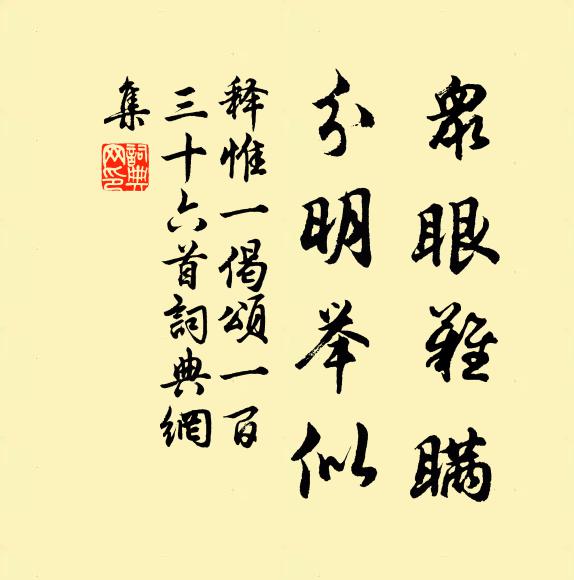 眾眼難瞞
分明举似
释惟一偈頌一百
三十六首詞典網
集
詞典網印